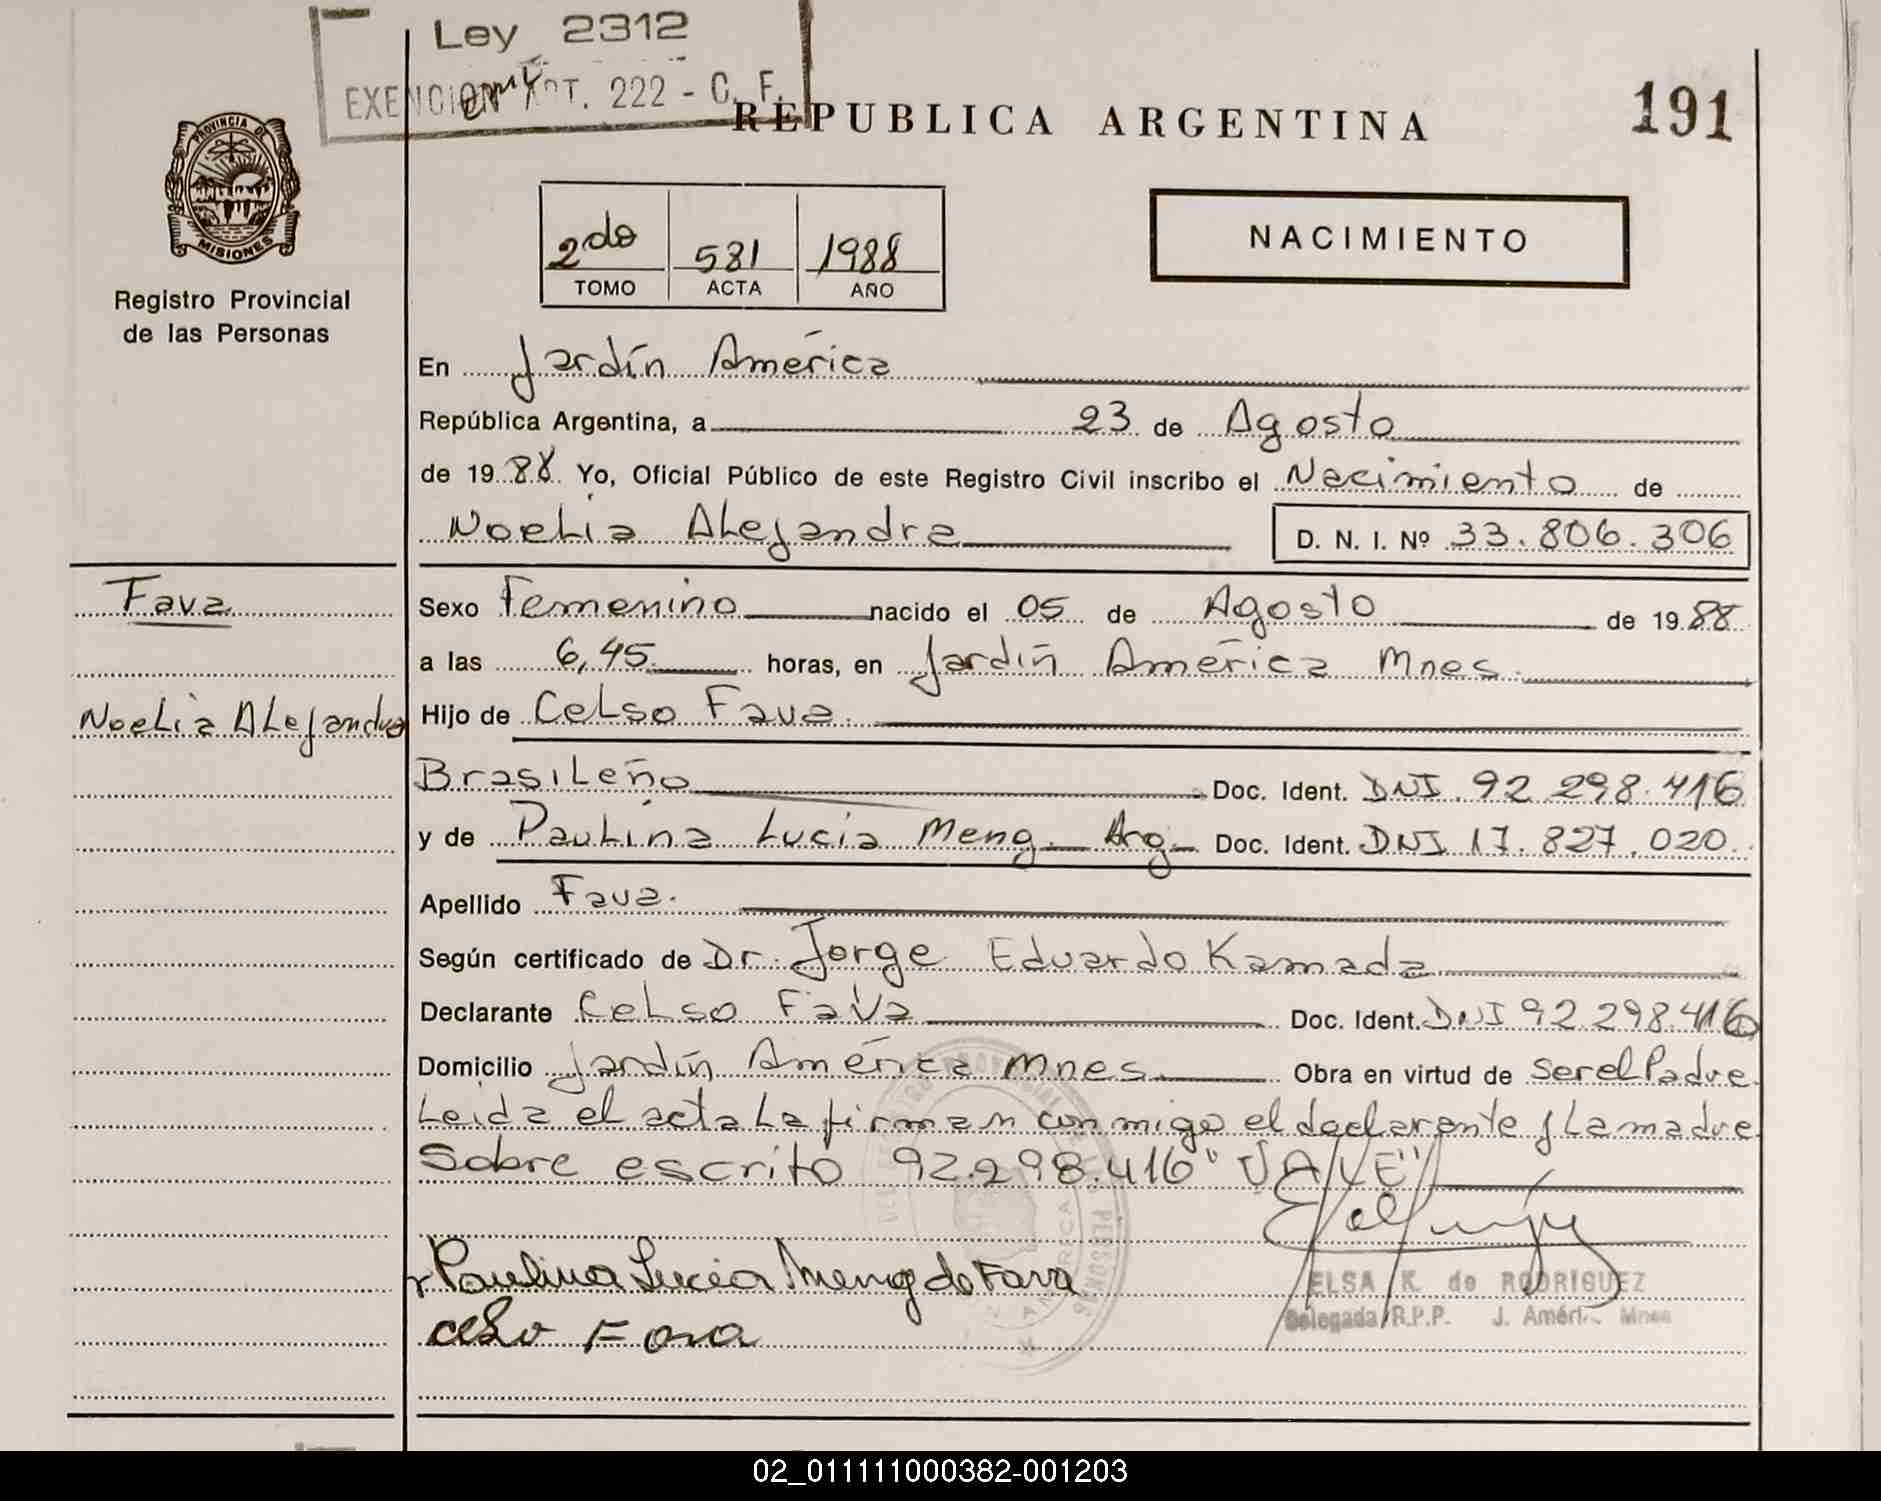 Ley 2312
EXENCION ART. 222 - C. F.
REPUBLICA ARGENTINA
191
PROVINCIA DE
MISIONES
Registro Provincial
de las Personas
2do 581 1988
TOMO ACTA AÑO
NACIMIENTO
En Jardín América
República Argentina, a 23 de Agosto
de 1988 Yo, Oficial Público de este Registro Civil inscribo el Nacimiento de
Noelia Alejandra D. N. I. Nº 33.806.306
Fava
Noelia Alejandra
Sexo Femenino nacido el 05 de Agosto de 1988
a las 6,45 horas, en Jardín América Mnes.
Hijo de Celso Fava.
Brasileño Doc. Ident. DNI. 92.298.416
y de Paulina Lucia Meng. Arg. Doc. Ident. DNI 17.827.020.
Apellido Fava.
Según certificado de Dr. Jorge Eduardo Kamada
Declarante Celso Fava Doc. Ident. DNI 92.298.416
Domicilio Jardín América Mnes. Obra en virtud de ser el Padre.
Leida el acta La firman conmigo el declarante y La madre
Sobre escrito 92.298.416 "VALE"
Paulina Lucia Meng de Fava
Celso Fava
ELSA K. de RODRIGUEZ
Delegada R.P.P. J. Améri. Mnes
02_011111000382-001203